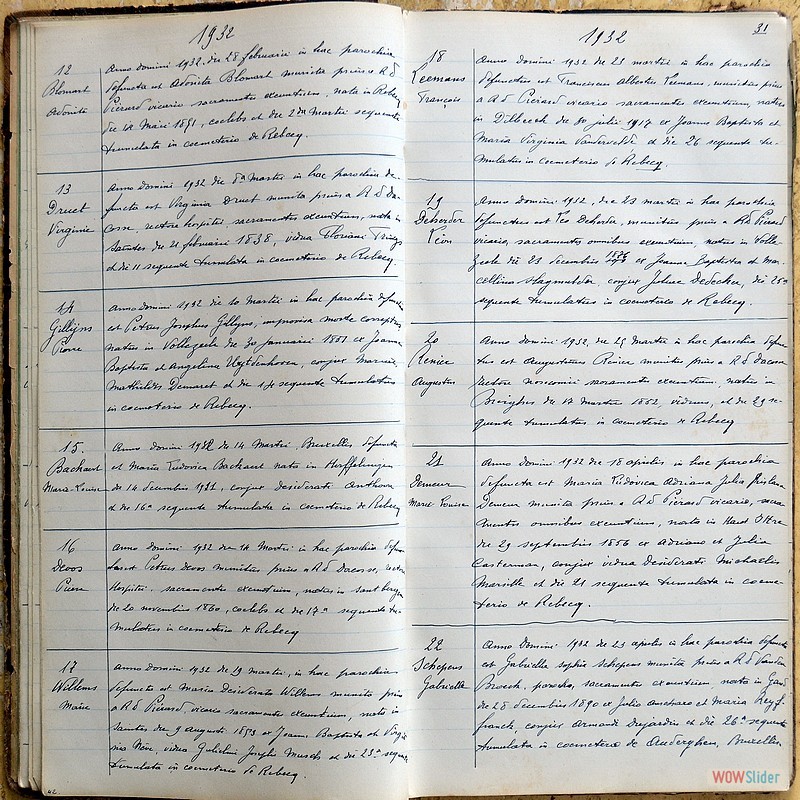 1932
12
Blomart
Adonité
Anno domini 1932, die 28 februarii in hac parochia
defuncta est Adonita Blomart munita prius a R d
Pierard vicario sacramentis exeuntium, nata in Rebecq
die 14 1851, coelebs et die 2da Martii sequente
tumulata in coemeterio de Rebecq.
13
Druet
Virginie
Anno domini 1932 die 8a Martii in hac parochia de-
functa est Virginia Druet munita prius a R d Da-
cosse, rectore hospitii, sacramentis exeuntium, nata in
Saintes, die 21 februarii 1838, vidua Floriani
et die 11 sequente tumulata in coemeterio de Rebecq.
14
Gillijns
Pierre
Anno Domini 1932 die 10 Martii in hac parochia defunc-
est Petrus Josephus Gillijns, improvisa morte correptus
natus in Vollezeele die 30 januarii 1851 ex Joanne
Baptista et Angelina Uytdenhoven, conjux Mariae
Mathildis Demaret et die 14 sequente tumulatus
in coemeterio de Rebecq.
15.
Bachaert
Maria-Louise
Anno Domini 1932 die 14 Martii, Bruxelles defuncta
est Maria Ludovica Bachaert nata in Herffelingen
die 14 decembris conjux desiderati Anthoons
et die 16a sequente tumulata in coemeterio de Rebecq
16
Devos
Pierre
Anno domini 1932 die 14 Martii in hac parochia defunc-
est Petrus Devos munitus prius a R d Dacosse, rector
Hospitii, sacramentis exeuntium, natus in
die 20 novembris 1860, coelebs et die 17a sequente tu-
mulatus in coemeterio de Rebecq
17
Willems
Marie
Anno domini 1932 die 19 martii, in hac parochia
defuncta est Maria Desiderata Willems munita prius
a R d Pierard, vicario sacramentis exeuntium, nata in
Saintes die 9 Augusti 1853 ex Joanne Baptista et Virgi-
nia Nève, vidua Gulielmi Josephi Musch et die 23a sequen
tumulata in coemeterio de Rebecq.
42.
1932
31
18
Leemans
François
Anno domini 1932 die 23 martii in hac parochia
defunctus est Franciscus Albertus Leemans, munitus prius
a R d Pierard vicario sacramentis exeuntium, natus
in Dilbeeck die 30 julii 1917 ex Joanne Baptista et
Maria Virginia Vandervelde, et die 26 sequente tu-
mulatus in coemeterio de Rebecq.
19
Deherder
Léon
Anno domini 1932, die 23 martii in hac parochia
defunctus est Leo Deherder, munitus prius a R d Pierard
vicario, sacramentis omnibus exeuntium, natus in Volle-
zeele die 23 decembris ex Joanne Baptista et Mar-
cellina Slagmulder, conjux Juliae Dedecker, die 25a
sequente tumulatus in coemeterio de Rebecq.
20
Renier
Augustus
Anno domini 1932, die 25 Martii in hac parochia defunc-
tus est Augustinus Renier munitus prius a R d Dacosse
rectore nosocomii sacramentis exeuntium, natus in
die 17 Martii 1852, viduus, et die 29 se-
quente tumulatus in coemeterio de Rebecq
21
Demeur
Marie Louise
Anno domini 1932 die 18 aprilis in hac parochia
defuncta est Maria Ludovica Adriana Julia Ghislana
Demeur munita prius a R d Pierard vicario, sacra-
mentis omnibus exeuntium, nata in Haut Ittre
die 29 septembris 1856 ex Adriano et Julia
Casterman, conjux vidua Desiderati Michaelis
Marsille et die 21 sequente tumulata in coeme-
terio de Rebecq.
22
Schepens
Gabrielle
Anno Domini 1932 die 23 aprilis in hac parochia defuncta
est Gabriella Sophia Schepens munita prius a R d Vanden
Broeck, parocho, sacramentis exeuntium, nata in Gand
die 28 decembris 1890 ex Julio et Maria
conjux Armandi Dejardin et die 26a sequente
tumulata in coemeterio de Auderghem, Bruxelles.
WOWSlider